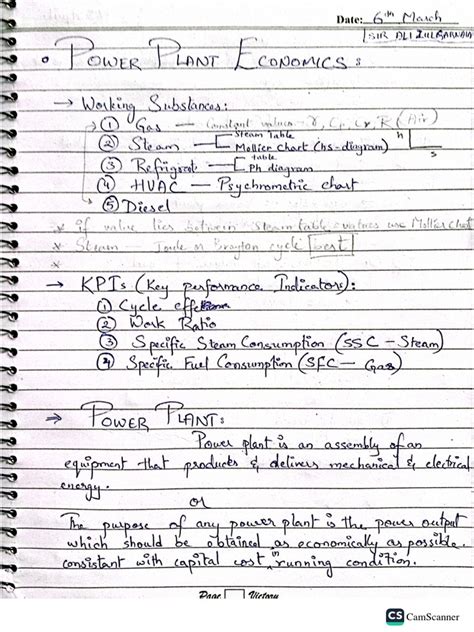 Date: 6th March
SIR ALI ZULQARNAIN
• POWER PLANT ECONOMICS:
→ Working Substances:
① Gas — Constant values — γ, Cp, Cv, R (Air)
② Steam — Steam Table
Mollier Chart (hs-diagram)
h
s
③ Refrigrent — table
Ph diagram
④ HVAC — Psychrometric chart
⑤ Diesel
* if value lies between Steam table values use Mollier Chart
* Steam — Joule or Brayton cycle best
*
→ KPIs (Key performance Indicators):
① Cycle
② Work Ratio
③ Specific Steam Consumption (SSC – Steam)
④ Specific Fuel Consumption (SFC – Gas)
→ POWER PLANT:
Power plant is an assembly of an
equipment that products & delivers mechanical & electrical
energy.
or
The purpose of any power plant is the power output
which should be obtained as economically as possible
consistant with capital cost in running condition.
Page Victory
CS CamScanner